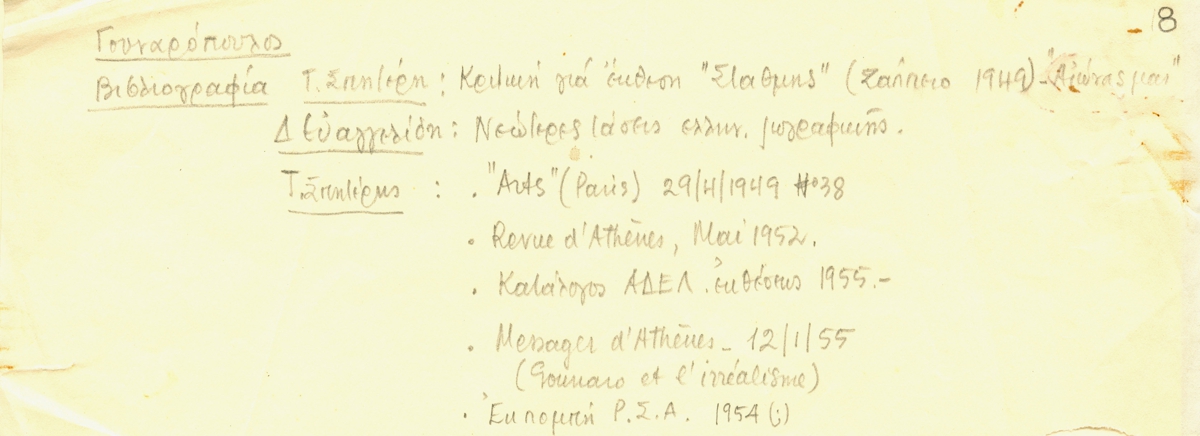 8
Γουναρόπουλος
Βιβλιογραφία Τ. Σπητέρη : Κριτική γιά ἔκθεση "Στάθμης" (Ζάππειο 1949) - "Αἰώνας μας"
Δ Εὐαγγελίδη : Νεώτερες τάσεις ελλην. ζωγραφικῆς.
Τ. Σπητέρης : . "Arts" (Paris) 29/4/1949 No 38
. Revue d'Athènes, Mai 1952.
. Κατάλογος ΑΔΕΛ. ἐκθέσης 1955.-
. Messager d'Athènes - 12/1/55
(Gounaro et l'irréalisme)
. Ἐκπομπή Ρ.Σ.Α. 1954 (;)